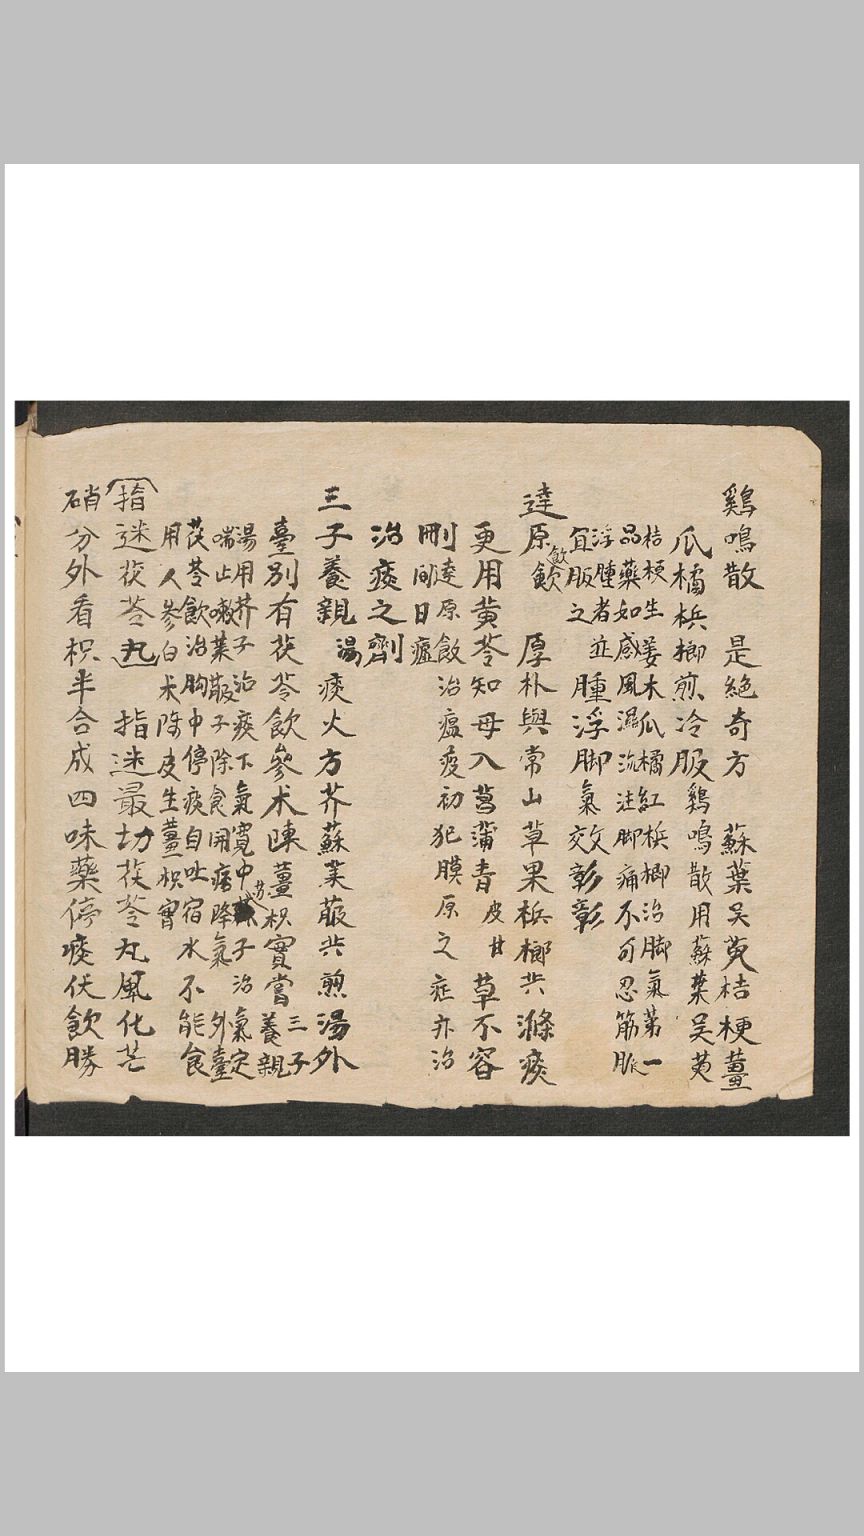 鷄鳴散　是絕奇方　蘇葉吴萸桔梗薑
瓜橘梹榔煎冷服 鷄鳴散用蘇葉吴萸
桔梗生姜木瓜橘紅梹榔治脚氣第一
品藥如感風濕流注脚痛不可忍筋脈
浮腫者並
宜服之
腫浮脚氣效彰彰
達原飲　厚朴與常山草果梹榔共滌痰
更用黄芩知母入菖蒲青皮甘草不容
刪 達原飲治瘟疫初犯膜原之症亦治
間日瘧
治痰之劑
三子養親湯　痰火方芥蘇萊菔共煎湯外
臺別有茯苓飲參术陳薑枳實嘗 三子
養親
湯用芥子治痰下氣寬中蘇子治氣定
喘止嗽萊菔子除食開痞降氣　外臺
茯苓飲治胸中停痰自吐宿水不能食
用人參白术陳皮生薑枳實
指迷茯苓丸　指迷最切茯苓丸風化芒
硝分外看枳半合成四味藥停痰伏飲勝